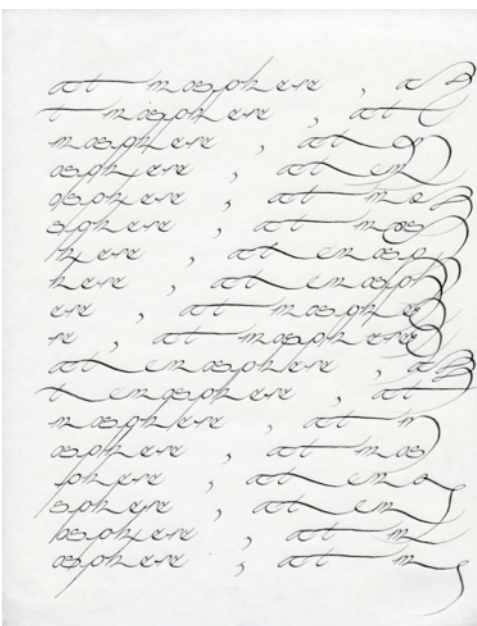 at mosphere , a
t mosphere , at
mosphere , at m
osphere , at m
osphere , at mo
sphere , at mos
here , at mosp
here , at mosph
ere , at mosphe
re , at mosphere
at mosphere , a
t mosphere , at
mosphere , at m
osphere , at mos
phere , at mo
sphere , at m
osphere , at m
osphere , at m